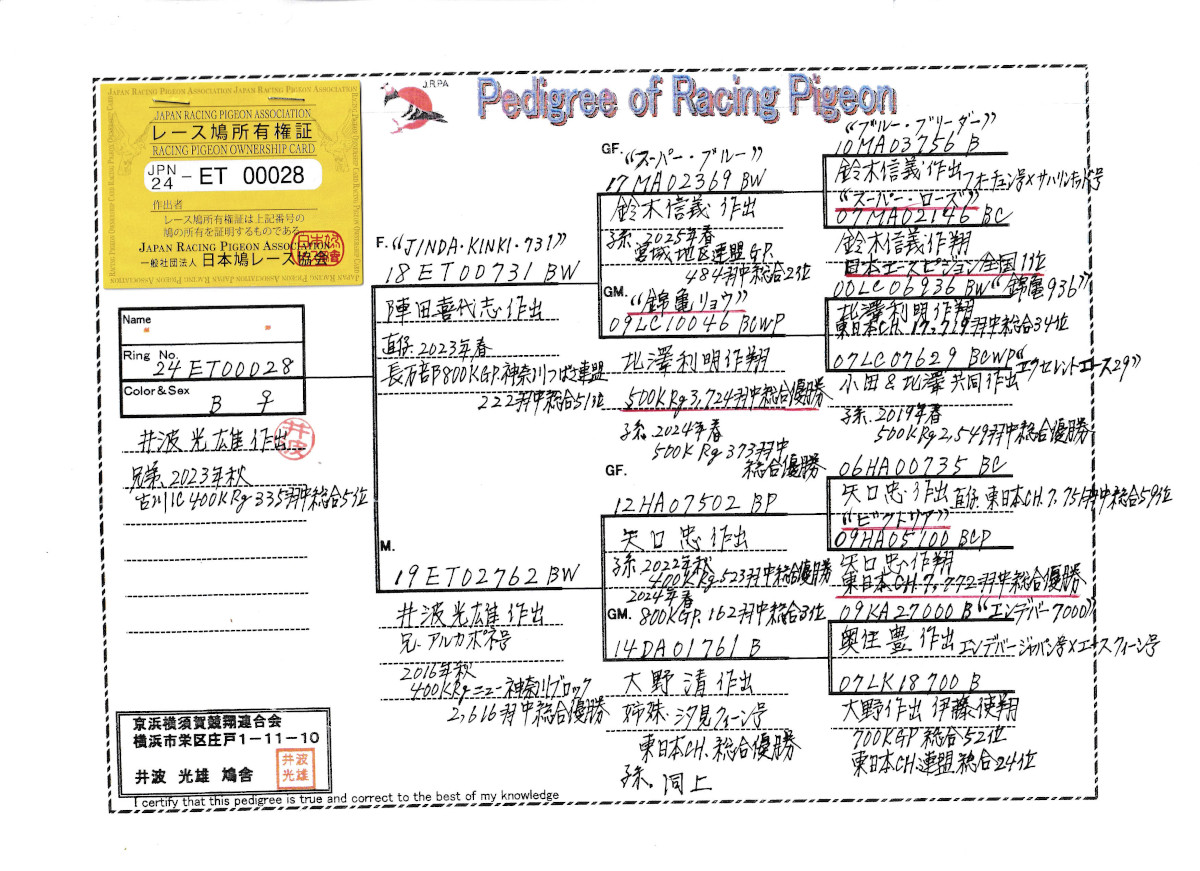 JAPAN RACING PIGEON ASSOCIATION JAPAN RACING PIGEON ASSOCIATION
JAPAN RACING PIGEON ASSOCIATION
レース鳩所有権証
RACING PIGEON OWNERSHIP CARD
JPN
24 - ET 00028
作出者
レース鳩所有権証は上記番号の
鳩の所有を証明するものである
JAPAN RACING PIGEON ASSOCIATION
一般社団法人 日本鳩レース協会
J.R.P.A
Pedigree of Racing Pigeon
Name
" "
Ring No.
24ET00028
Color & Sex
B ♀
井波光雄作出
井波
兄弟、2023年秋
古川IC400KRg335羽中総合5位
F. "JINDA・KINKI・731"
18ET00731 BW
陣田喜代志作出
直仔、2023年春
長万部800KGP.神奈川つばさ連盟
222羽中総合51位
M.
19ET02762 BW
井波光雄作出
兄、アルカポネ号
2016年秋
400KRgニュー神奈川ブロック
2,616羽中総合優勝
GF. "スーパー・ブルー"
17MA02369 BW
鈴木信義作出
子孫、2025年春
宮城地区連盟G.P.
484羽中総合2位
GM. "錦亀リョウ"
09LC10046 BCWP
北澤利明作翔
500KRg3,724羽中総合優勝
子孫、2024年春
500KRg373羽中
総合優勝
GF.
12HA07502 BP
矢口忠作出
子孫、2022年秋
400KRg.523羽中総合優勝
2024年春
GM. 800KGP.162羽中総合3位
14DA01761 B
大野清作出
姉妹、汐見クィーン号
東日本CH.総合優勝
子孫、同上
"ブルー・ブリーダー"
10MA03756 B
鈴木信義作出
フォーチュン号×サハリンキッド号
"スーパー・ローズ"
07MA02146 BC
鈴木信義作翔
日本エースピジョン全国11位
00LC06936 BW "錦亀936"
北澤利明作翔
東日本CH.17,719羽中総合34位
07LC07629 BCWP "エクセレントエース29"
小田&北澤共同作出
子孫、2019年春
500KRg2,549羽中総合優勝
06HA00735 BC
矢口忠作出 直仔、東日本CH.7,751羽中総合59位
"ビクトリア"
09HA05100 BCP
矢口忠作翔
東日本CH.7,772羽中総合優勝
09KA27000 B "エンデバー7000"
奥住豊作出 エンデバージャパン号×エースクィーン号
07LK18700 B
大野作出 伊藤使翔
700KGP総合52位
東日本CH連盟総合24位
京浜横須賀競翔連合会
横浜市栄区庄戸1-11-10
井波 光雄 鳩舎
井波
光雄
I certify that this pedigree is true and correct to the best of my knowledge